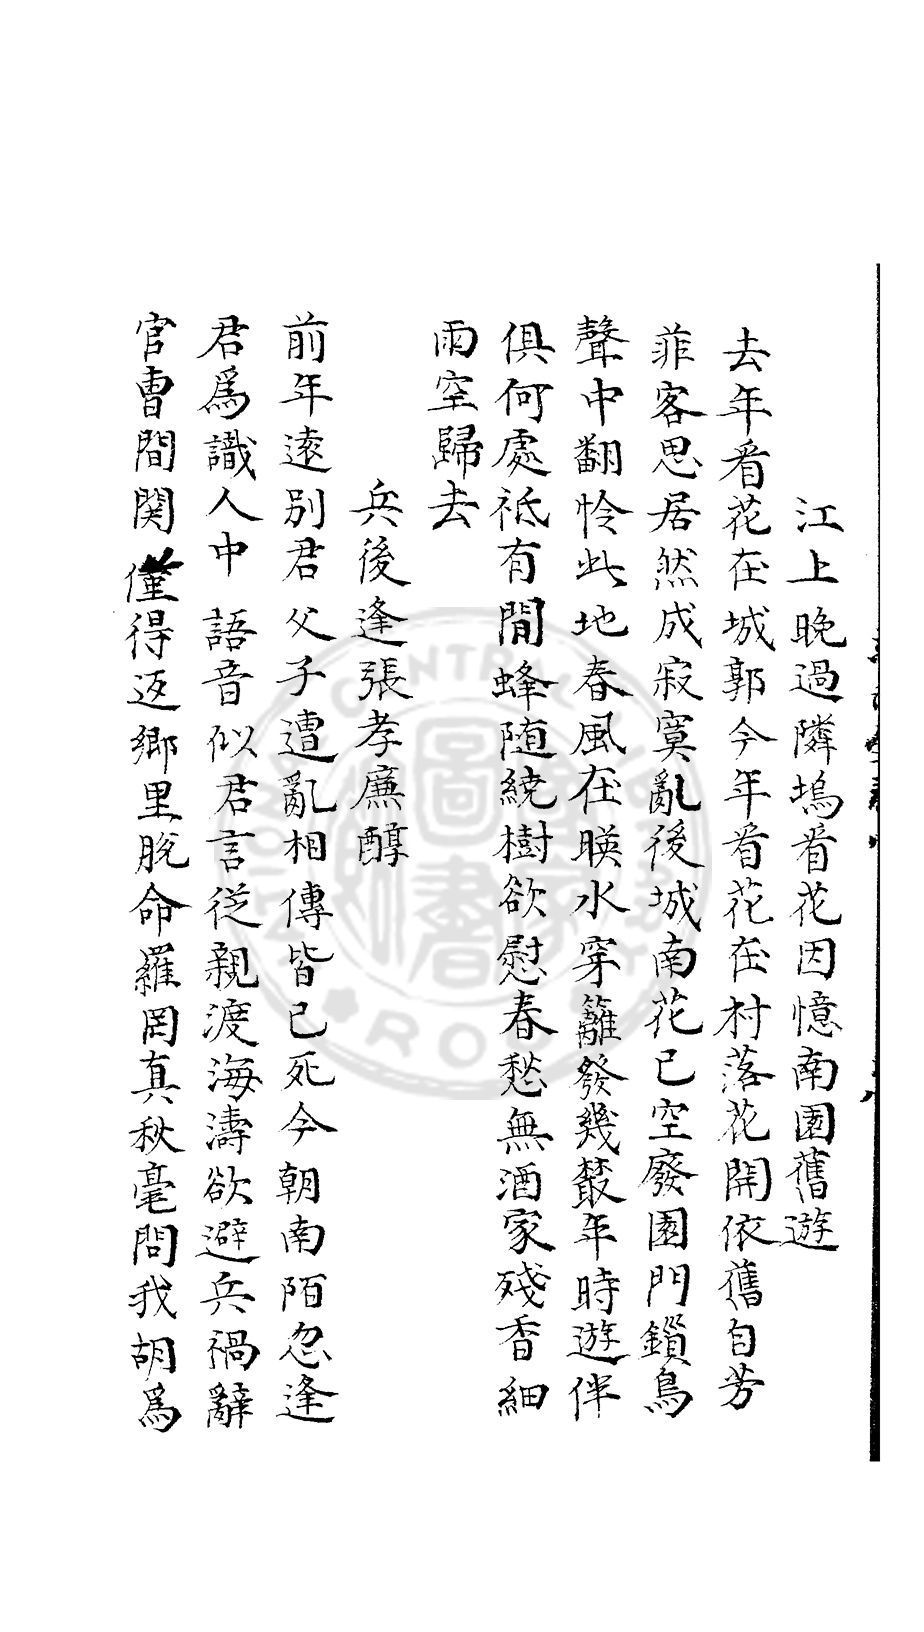 江上晚過隣塢看花因憶南園舊遊
去年看花在城郭今年看花在村落花開依舊自芳
菲客思居然成寂寞亂後城南花已空廢園門鎖鳥
聲中翻怜此地春風在暎水穿籬發幾叢年時遊伴
俱何處祗有閒蜂随繞樹欲慰春愁無酒家殘香細
雨空歸去
兵後逢張孝廉醇
前年遠別君父子遭亂相傳皆已死今朝南陌忽逢
君為識人中語音似君言従親渡海濤欲避兵禍辭
官曹間関僅得返鄉里脫命羅罔真秋毫問我胡為